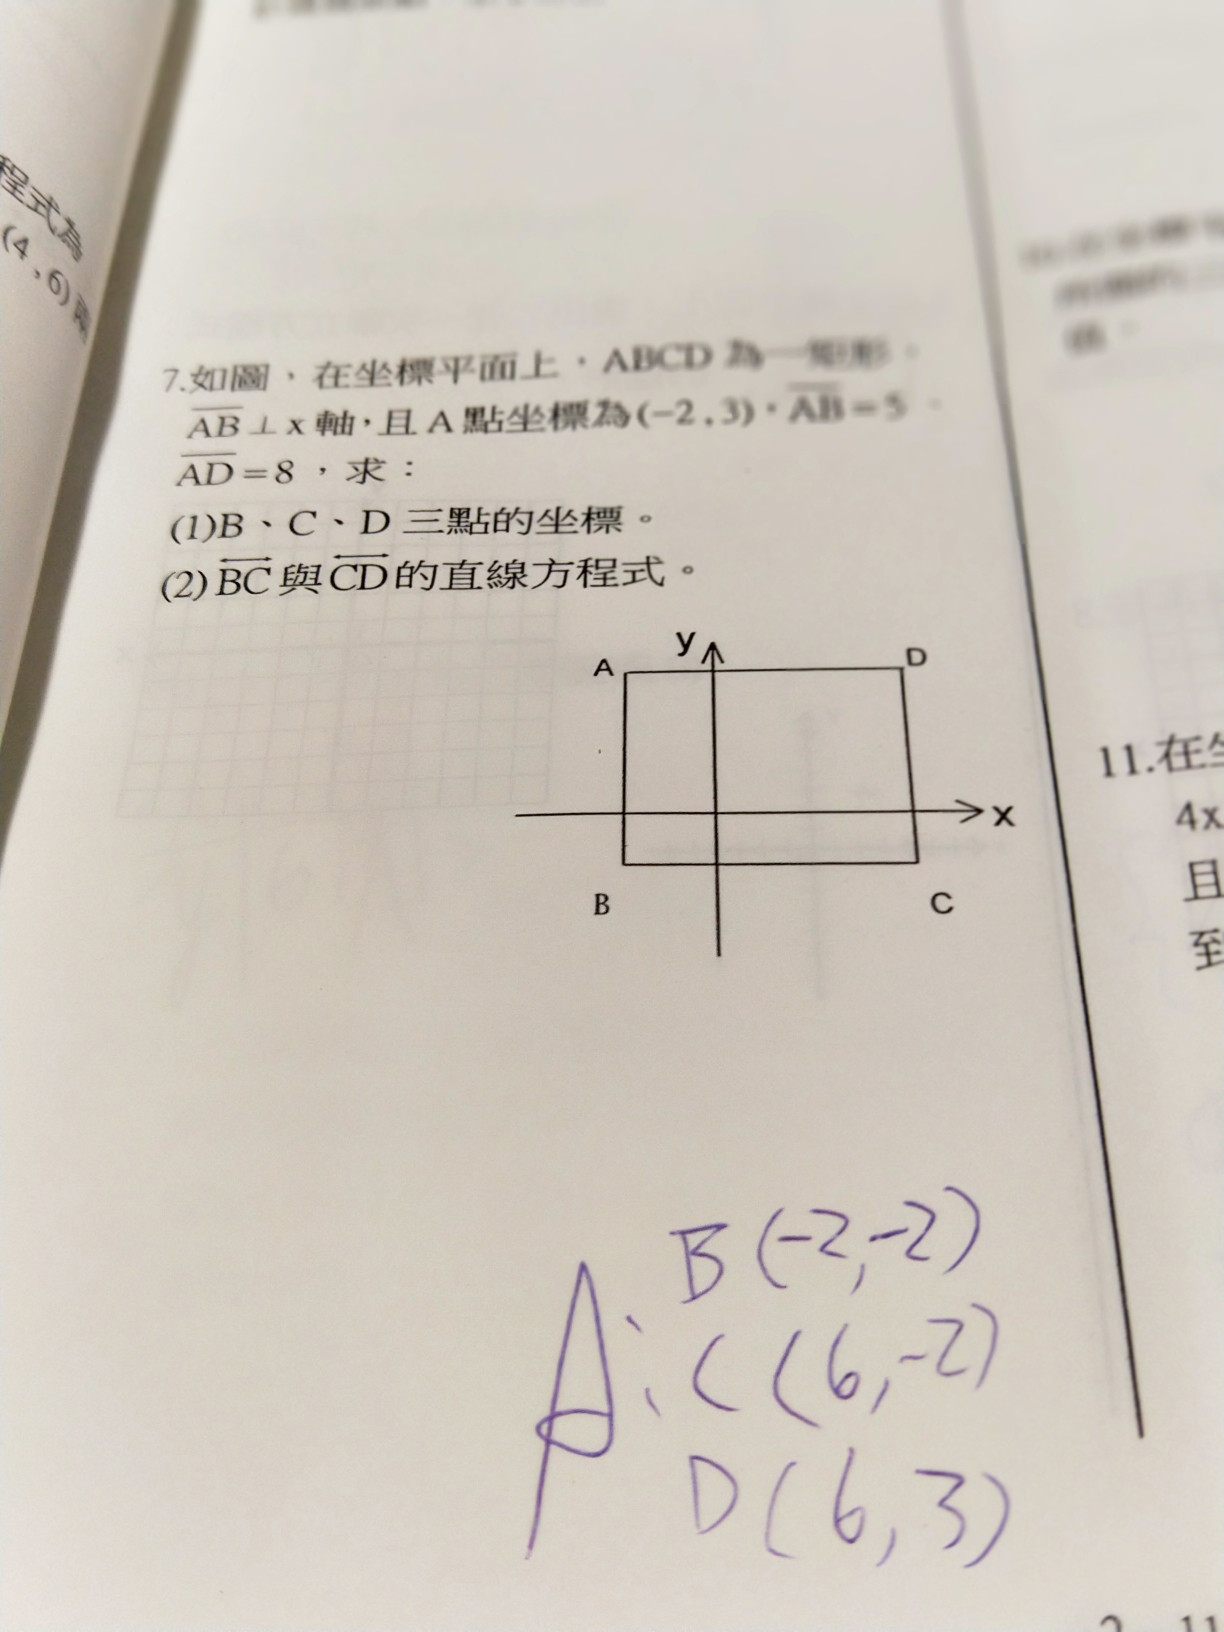 程式為
(4,6)兩
7.如圖，在坐標平面上，ABCD 為一矩形，
AB⊥x 軸，且 A 點坐標為(−2,3)，AB=5，
AD=8，求：
(1)B、C、D 三點的坐標。
(2)BC與CD的直線方程式。
y
A
D
x
B
C
A:
B(-2,-2)
C(6,-2)
D(6,3)
11.在坐
4x
且
到